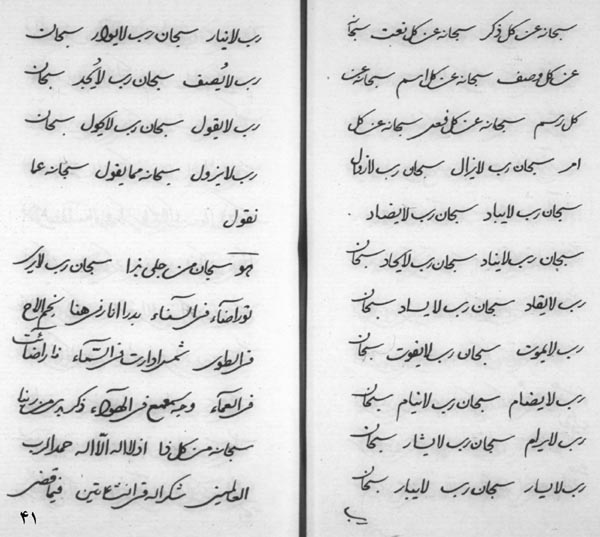 سبحانه عن کل ذکر سبحانه عن کل نعت سبحانه
عن کل وصف سبحانه عن کل اسم سبحانه عن
کل رسم سبحانه عن کل فعل سبحانه عن کل
امر سبحان رب لا یزال سبحان رب لا زوال
سبحان رب لا یباد سبحان رب لا یضاد
سبحان رب لا یناد سبحان رب لا یحاد سبحان
رب لا یقاد سبحان رب لا یساد سبحان
رب لا یموت سبحان رب لا یفوت سبحان
رب لا یضام سبحان رب لا ینام سبحان
رب لا یرام سبحان رب لا یشار سبحان
رب لا یسار سبحان رب لا یبار سبحان
رب لا ینار سبحان رب لا یوار سبحان
رب لا یُصف سبحان رب لا یُحد سبحان
رب لا یقول سبحان رب لا یحول سبحان
رب لا یزول سبحانه مما یقول سبحانه عما
نقول
هو سبحان من جلی بذا سبحان رب لا یری
نور اضآء فی السماء بدر انار فی هنا نجم الاح
فی الطوی شمس ادارت فی السمآء نار اضائت
فی العمآء وجه فی الهوآء ذکر من ربنا
سبحانه من کل ذا اذ لا اله الا اله حمدا لرب
العالمین شکرا له فی فیما قضی
۴۱